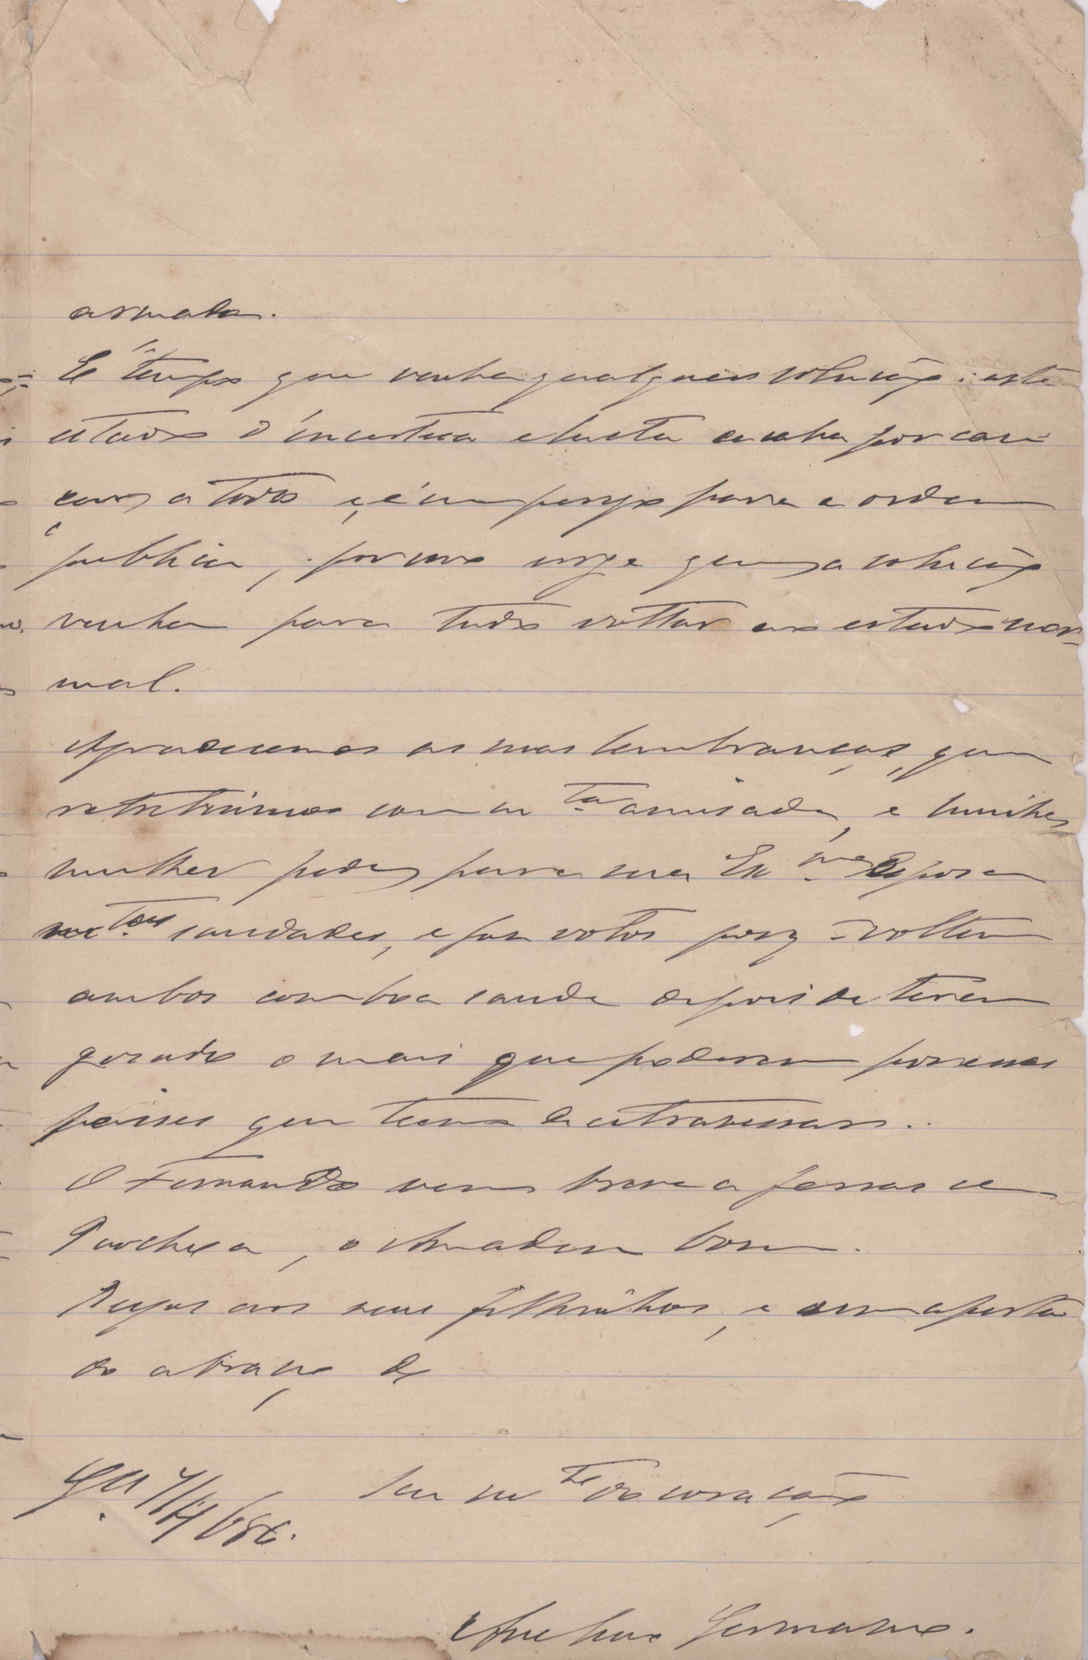 armada.
É tempo que venha qualquer solução: este
estado d'incerteza e lucta acaba por can
çar a todos, e é um perigo para a ordem
publica, por isso urge que a solução
venha para tudo voltar ao estado nor-
mal.
Agradecemos as suas lembranças, que
retribuimos com a amisade, e minha
mulher pede para sua Exma Esposa
saudades, e faz votos porq voltem
ambos com boa saude depois de terem
gosado o mais que poderem por esses
paises que teem de atravessar.
O Fernando vem breve a ferias a
, o bom.
Beijos aos seus filhinhos, e um aperta
do abraço de
Seu do coração
7/4/86.
Germano.